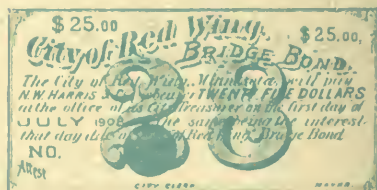 $25.00 $25.00,
City of Red Wing,
BRIDGE BOND.
The City of Red Wing, Minnesota, will pay
N.W. HARRIS & Co. or bearer TWENTY FIVE DOLLARS
at the office of its City Treasurer on the first day of
JULY 1908 the same being the interest
that day due on Red Wing, Bridge Bond
NO.
28
Attest
CITY CLERK MAYOR.